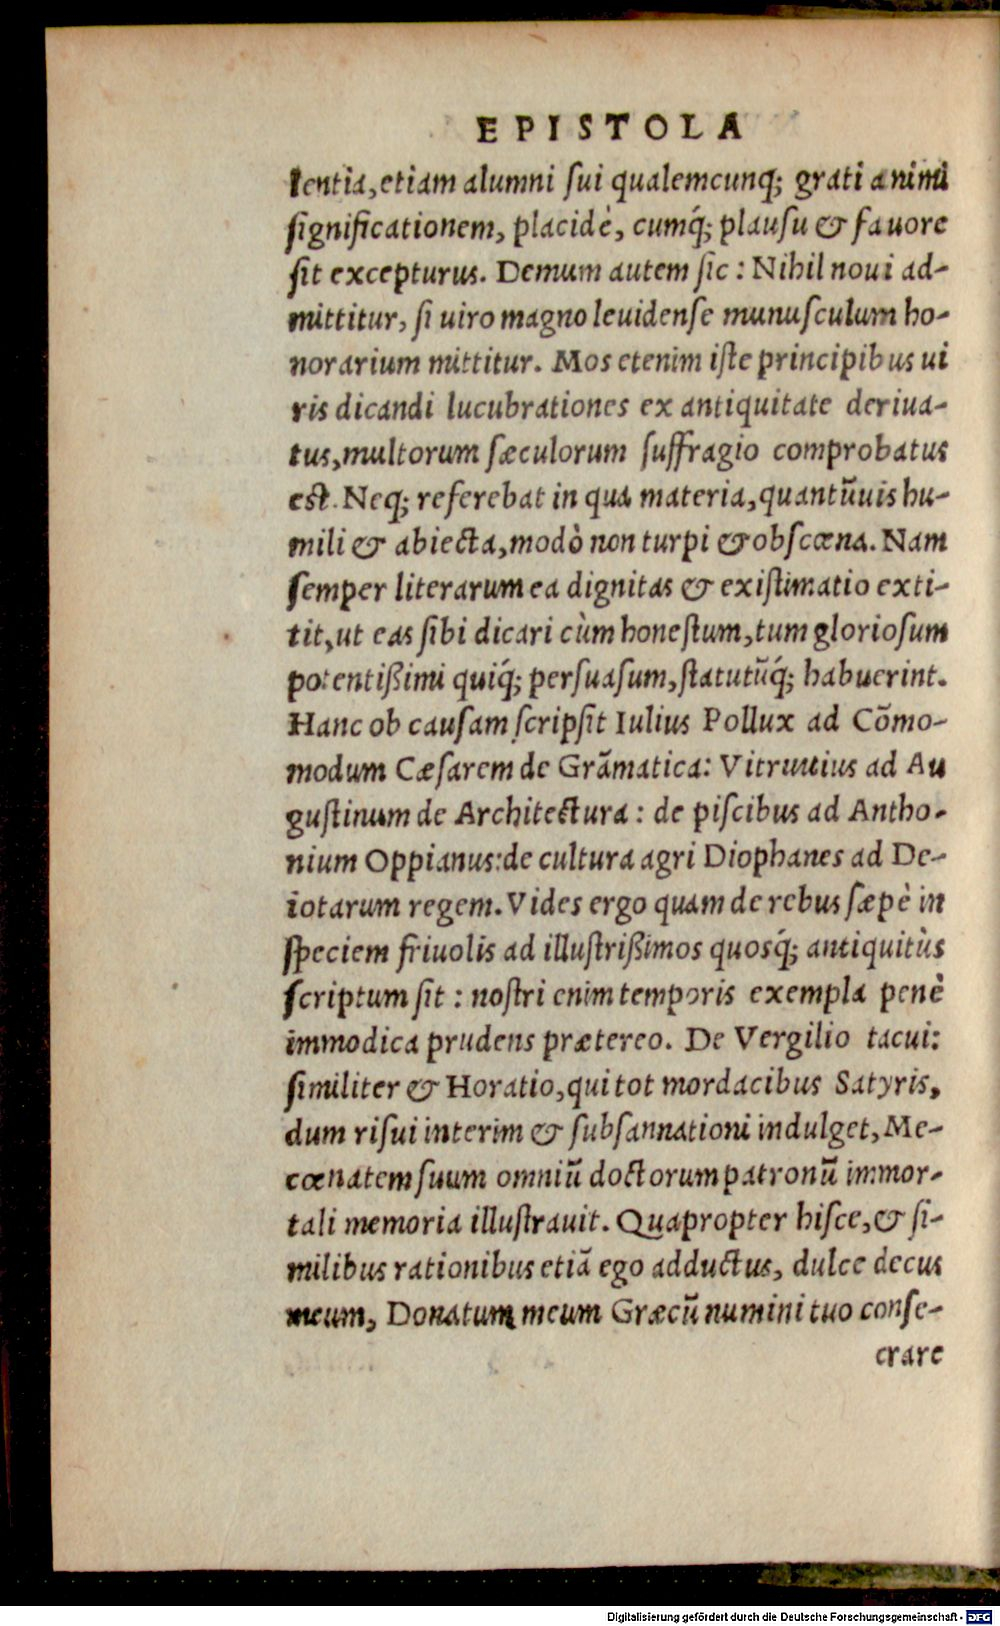 EPISTOLA
lentia, etiam alumni ſui qualemcunq́; grati animi
ſignificationem, placidè, cumq́; plauſu & fauore
ſit excepturus. Demum autem ſic : Nihil noui ad-
mittitur, ſi uiro magno leuidenſe munuſculum ho-
norarium mittitur. Mos etenim iſte principibus ui
ris dicandi lucubrationes ex antiquitate deriua-
tus, multorum ſæculorum ſuffragio comprobatus
eſt. Neq; referebat in qua materia, quantũuis hu-
mili & abiecta, modò non turpi & obſcœna. Nam
ſemper literarum ea dignitas & exiſtimatio exti-
tit, ut eas ſibi dicari cùm honeſtum, tum glorioſum
potentißimi quiq́; perſuaſum, ſtatutũq́; habuerint.
Hanc ob cauſam ſcripſit Iulius Pollux ad Cõmo-
modum Cæſarem de Grãmatica: Vitruuius ad Au
guſtinum de Architectura : de piſcibus ad Antho-
nium Oppianus: de cultura agri Diophanes ad De-
iotarum regem. Vides ergo quam de rebus ſæpè in
ſpeciem friuolis ad illuſtrißimos quosq́; antiquitùs
ſcriptum ſit : noſtri enim temporis exempla penè
immodica prudens prætereo. De Vergilio tacui:
ſimiliter & Horatio, qui tot mordacibus Satyris,
dum riſui interim & ſubſannationi indulget, Me-
cœnatem ſuum omniũ doctorum patronũ immor-
tali memoria illuſtrauit. Quapropter hiſce, & ſi-
milibus rationibus etiã ego adductus, dulce decus
meum, Donatum meum Græcũ numini tuo conſe-
crare
Digitalisierung gefördert durch die Deutsche Forschungsgemeinschaft - DFG